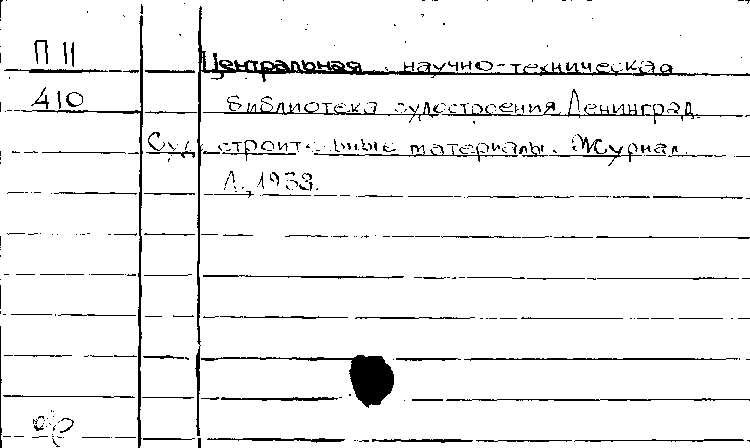 П 11 Центральная научно-техническая
410 библиотека судостроения. Ленинград.
Судостроительные материалы. Журнал.
Л., 1938.